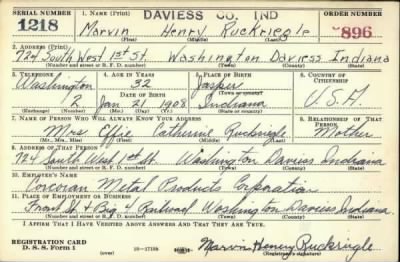 SERIAL NUMBER 1. NAME (Print) DAVIESS CO. IND ORDER NUMBER
1218 Marvin Henry Ruckriegle 896
(First) (Middle) (Last)
2. ADDRESS (Print)
724 South West 1st St. Washington Daviess Indiana
(Number and street or R. F. D. number) (Town) (County) (State)
3. TELEPHONE 4. AGE IN YEARS 5. PLACE OF BIRTH 6. COUNTRY OF CITIZENSHIP
Washington 32 Jasper
DATE OF BIRTH (Town or county)
R Jan 21 1908 Indiana U.S.A.
(Exchange) (Number) (Mo.) (Day) (Yr.) (State or country)
7. NAME OF PERSON WHO WILL ALWAYS KNOW YOUR ADDRESS 8. RELATIONSHIP OF THAT PERSON
Mrs Effie Catherine Ruckriegle Mother
(Mr., Mrs., Miss) (First) (Middle) (Last)
9. ADDRESS OF THAT PERSON
724 South West 1st St. Washington Daviess Indiana
(Number and street or R. F. D. number) (Town) (County) (State)
10. EMPLOYER'S NAME
Corcoran Metal Products Corporation
11. PLACE OF EMPLOYMENT OR BUSINESS
Front St & Big 4 Railroad Washington Daviess Indiana.
(Number and street or R. F. D. number) (Town) (County) (State)
I AFFIRM THAT I HAVE VERIFIED ABOVE ANSWERS AND THAT THEY ARE TRUE.
REGISTRATION CARD
D. S. S. Form 1 (over) 16—17105 Marvin Henry Ruckriegle
(Registrant's signature)